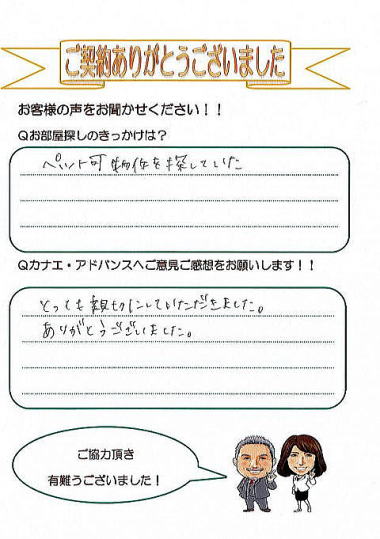 ご契約ありがとうございました
お客様の声をお聞かせください！！
Qお部屋探しのきっかけは？
ペット可物件を探していた
Qカナエ・アドバンスへご意見ご感想をお願いします！！
とっても親切にしていただきました。
ありがとうございました。
ご協力頂き
有難うございました！